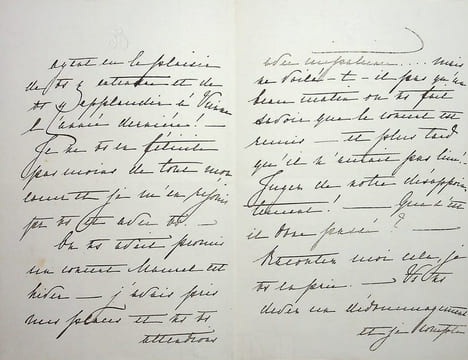 ayant eu le plaisir
de vs y entendre et de
vs y applaudir à
l'année dernière! —
Je ne vs en félicite
pas moins de tout mon
cœur et je m'en réjouis
pr vs et avec vs. —
On vs avait promis
un concert cet
hiver — j'avais pris
mes places et ns vs
attendions
avec impatience.... mais
ne voilà-t-il pas qu'un
beau matin on ns fait
savoir que le concert est
remis — et plus tard
qu'il n'aurait pas lieu!
Jugez de notre désappoin
tement! — Que s'est
il donc passé? —
Racontez moi cela, je
vs en prie. — Vs ns
devez un dédommagement
et je compte